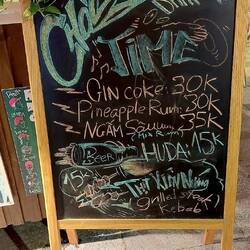 TIME
GIN COKE: 30K
Pineapple Rum: 30K
NGÂM 35K
MIX RUM
BEER HUDA: 15K
15K
THỊT XIÊN Nướng
grilled steak
Kebab